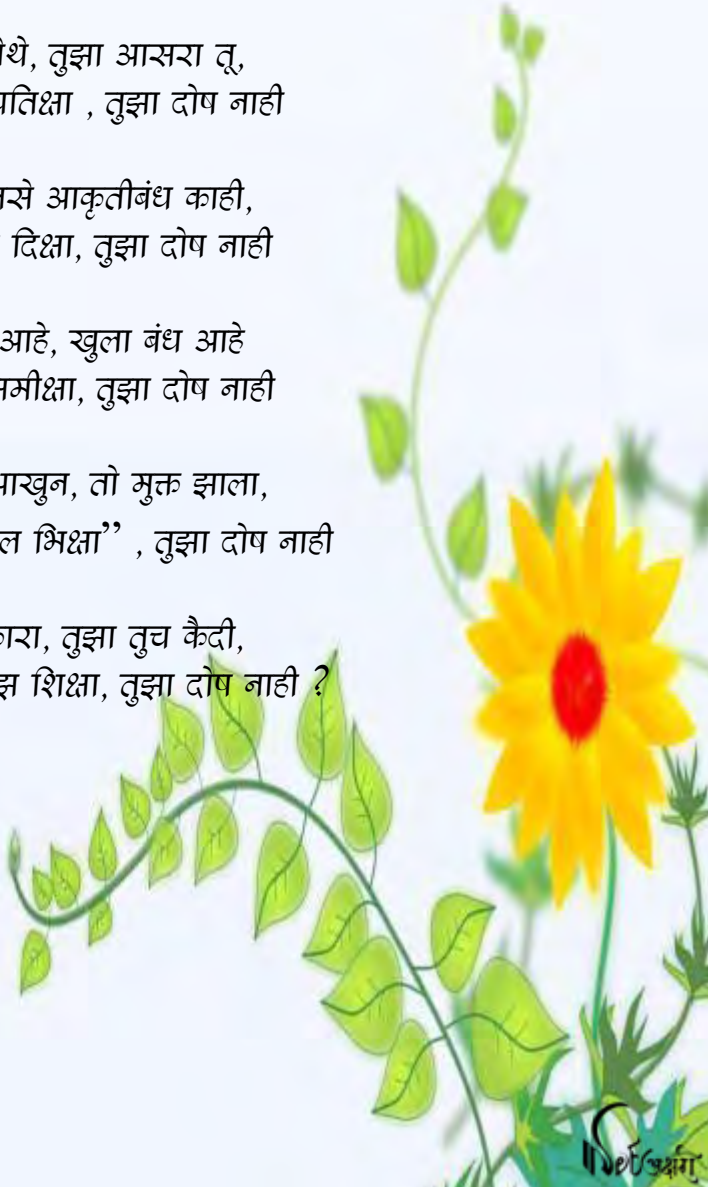 तुझा आसरा तू,
तुझा दोष नाही
आकृतीबंध काही,
दिक्षा, तुझा दोष नाही
आहे, खुला बंध आहे
समीक्षा, तुझा दोष नाही
तो मुक्त झाला,
भिक्षा” , तुझा दोष नाही
तुझा तुच कैदी,
शिक्षा, तुझा दोष नाही ?